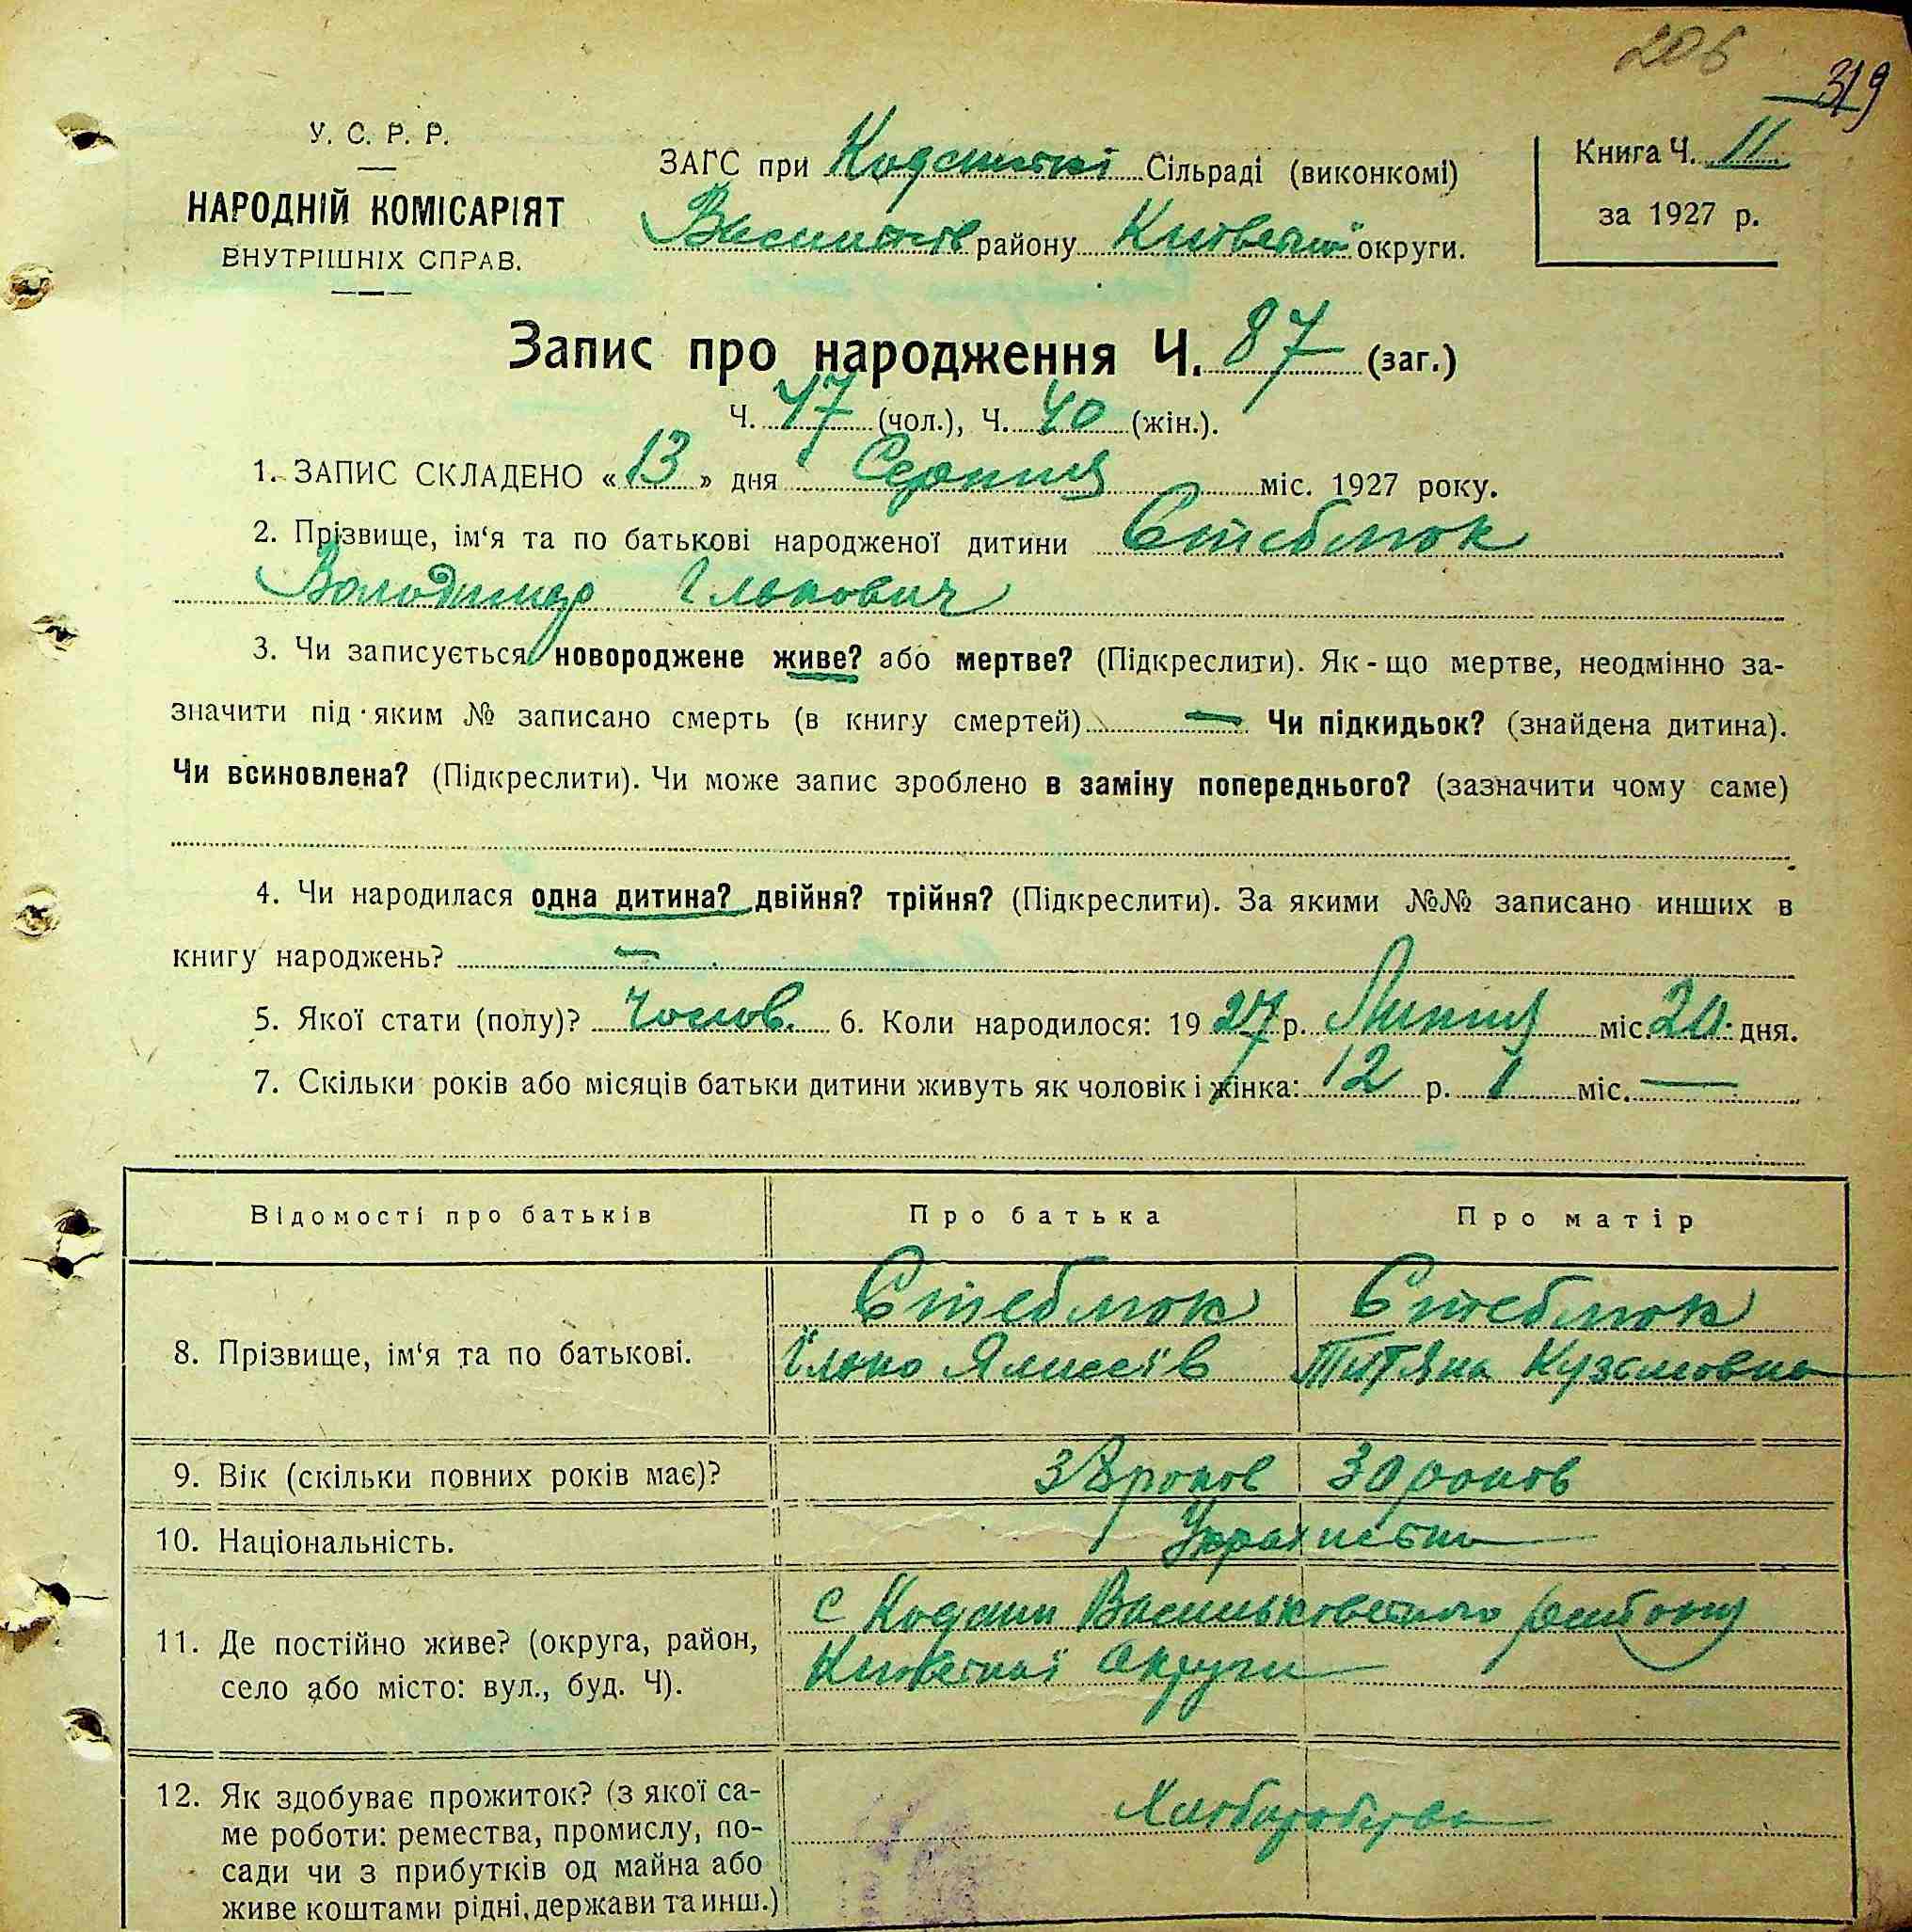 206
319
У. С. Р. Р.
НАРОДНІЙ КОМІСАРІЯТ
ВНУТРІШНІХ СПРАВ.
ЗАГС при Кодакскій Сільраді (виконкомі)
Васильків району Київської округи.
Книга Ч. II
за 1927 р.
Запис про народження Ч. 87 (заг.)
Ч. 47 (чол.), Ч. 40 (жін.).
1. ЗАПИС СКЛАДЕНО «13» дня Серпня міс. 1927 року.
2. Прізвище, ім'я та по батькові народженої дитини Стеблюк
Володимер Ількович
3. Чи записується новороджене живе? або мертве? (Підкреслити). Як-що мертве, неодмінно за-
значити під яким № записано смерть (в книгу смертей) — Чи підкидьок? (знайдена дитина).
Чи всиновлена? (Підкреслити). Чи може запис зроблено в заміну попереднього? (зазначити чому саме)
4. Чи народилася одна дитина? двійня? трійня? (Підкреслити). За якими №№ записано инших в
книгу народжень? —
5. Якої стати (полу)? Чолов. 6. Коли народилося: 1927 р. Липня міс. 20 дня.
7. Скільки років або місяців батьки дитини живуть як чоловік і жінка: 12 р. 1 міс. —
Відомості про батьків Про батька Про матір
8. Прізвище, ім'я та по батькові. Стеблюк Стеблюк
Ілько Титяна Кузьмовна
9. Вік (скільки повних років має)? 38 роков 30 роков
10. Національність.
11. Де постійно живе? (округа, район,
село або місто: вул., буд. Ч).
с Кодаки Васильковського району
Київської Округи
12. Як здобуває прожиток? (з якої са-
ме роботи: ремества, промислу, по-
сади чи з прибутків од майна або
живе коштами рідні, держави та инш.)